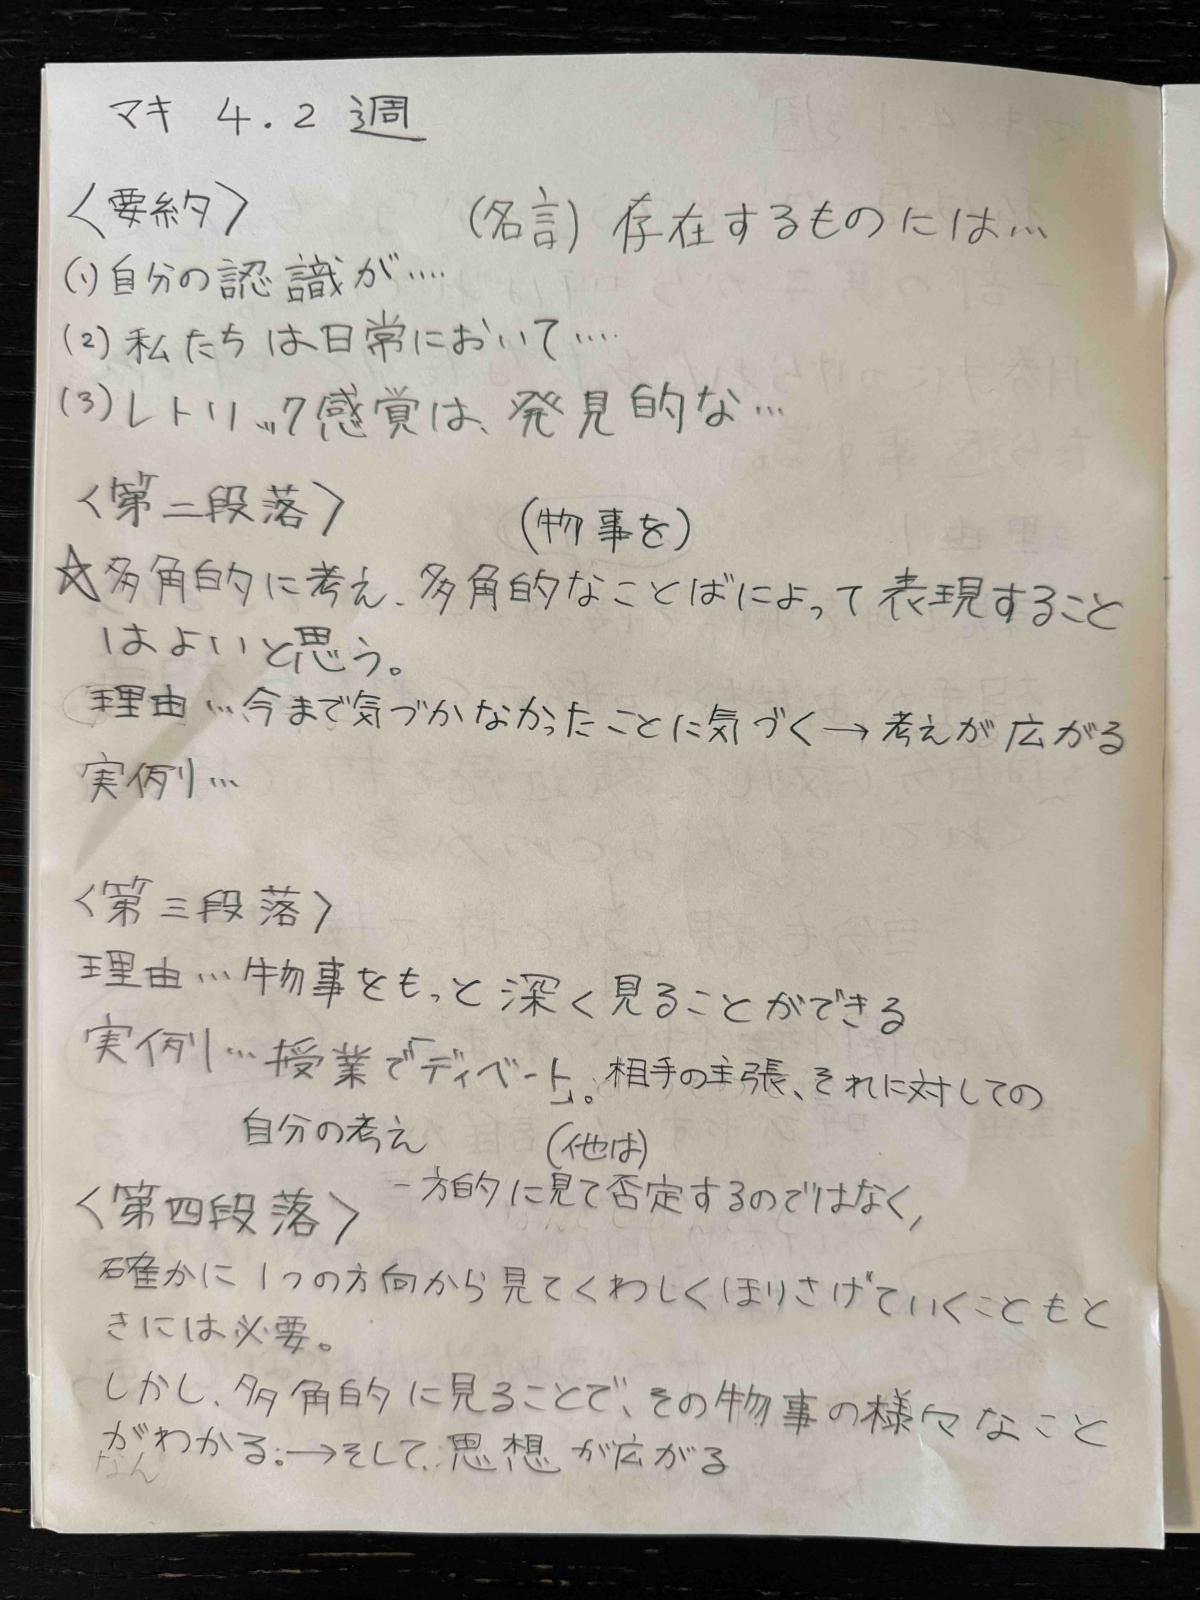 マキ 4.2 週
〈要約〉 (名言) 存在するものには…
(1) 自分の認識が‥‥
(2) 私たちは日常において‥‥
(3) レトリック感覚は、発見的な…
〈第二段落〉 (物事を)
☆多角的に考え、多角的なことばによって表現すること
はよいと思う。
理由…今まで気づかなかったことに気づく→考えが広がる
実例…
〈第三段落〉
理由…物事をもっと深く見ることができる
実例…授業で「ディベート」。相手の主張、それに対しての
自分の考え (他は)
〈第四段落〉 一方的に見て否定するのではなく,
確かに1つの方向から見てくわしくほりさげていくこともと
きには必要。
しかし、多角的に見ることで、その物事の様々なこと
がわかる。→そして、思想が広がる
なん